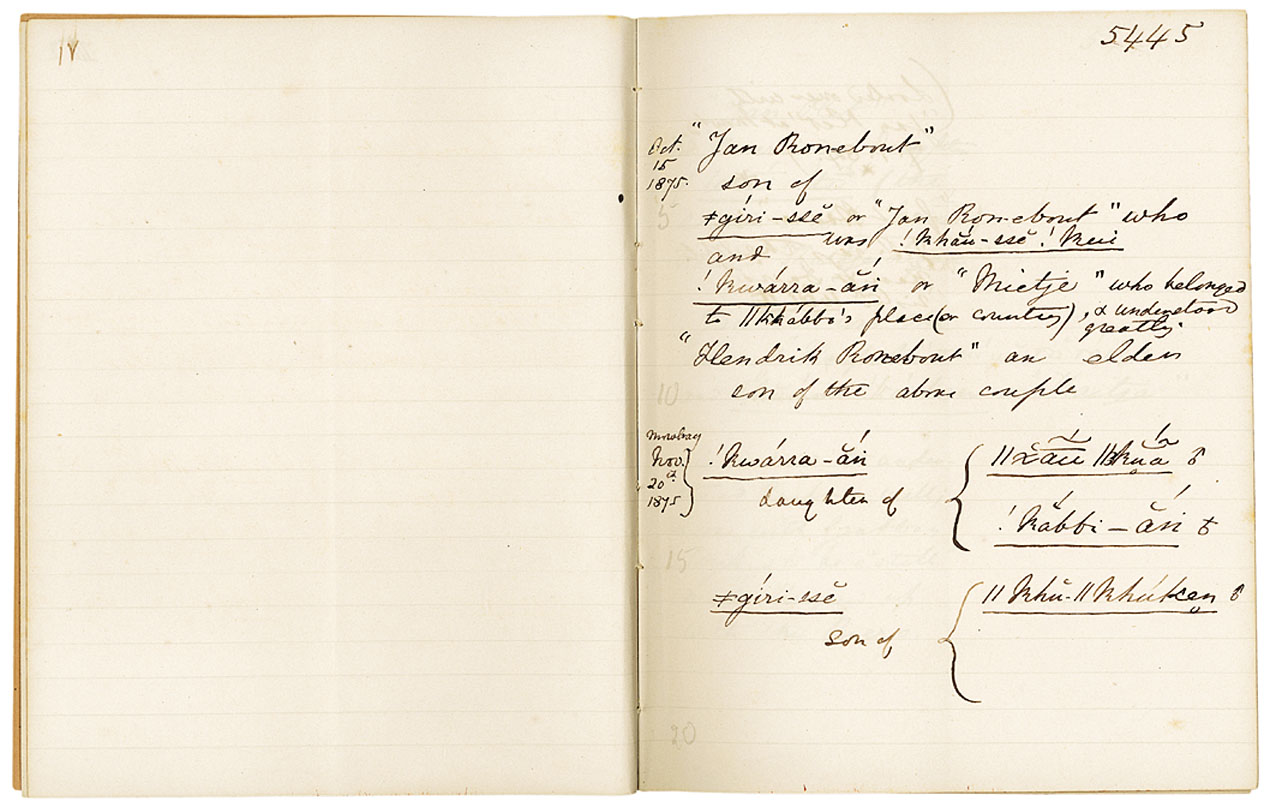 17
5445
Oct.
15
1875.
"Jan Ronebout"
son of
5
ǂgíri-ssĕ or "Jan Ronebout" who
was !khău-ssĕ !kui
and
!kwárra-ắn or "Mietje" who belonged
to ǁkhábbi's place (or country), & understood
greatly.
"Hendrik Ronebout" an elder
10
son of the above couple
Mowbray
Nov.
20th
1875
!kwárra-ắn
daughter of
ǁkŭā ♂
!kắbbi-ắn ♀
15
ǂgíri-ssĕ
son of
ǁkhŭ-ǁkhúken ♂
20